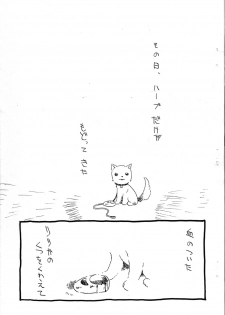 その日、ハーブだけが
もどってきた
血のついた
りらたの
くつをくわえて